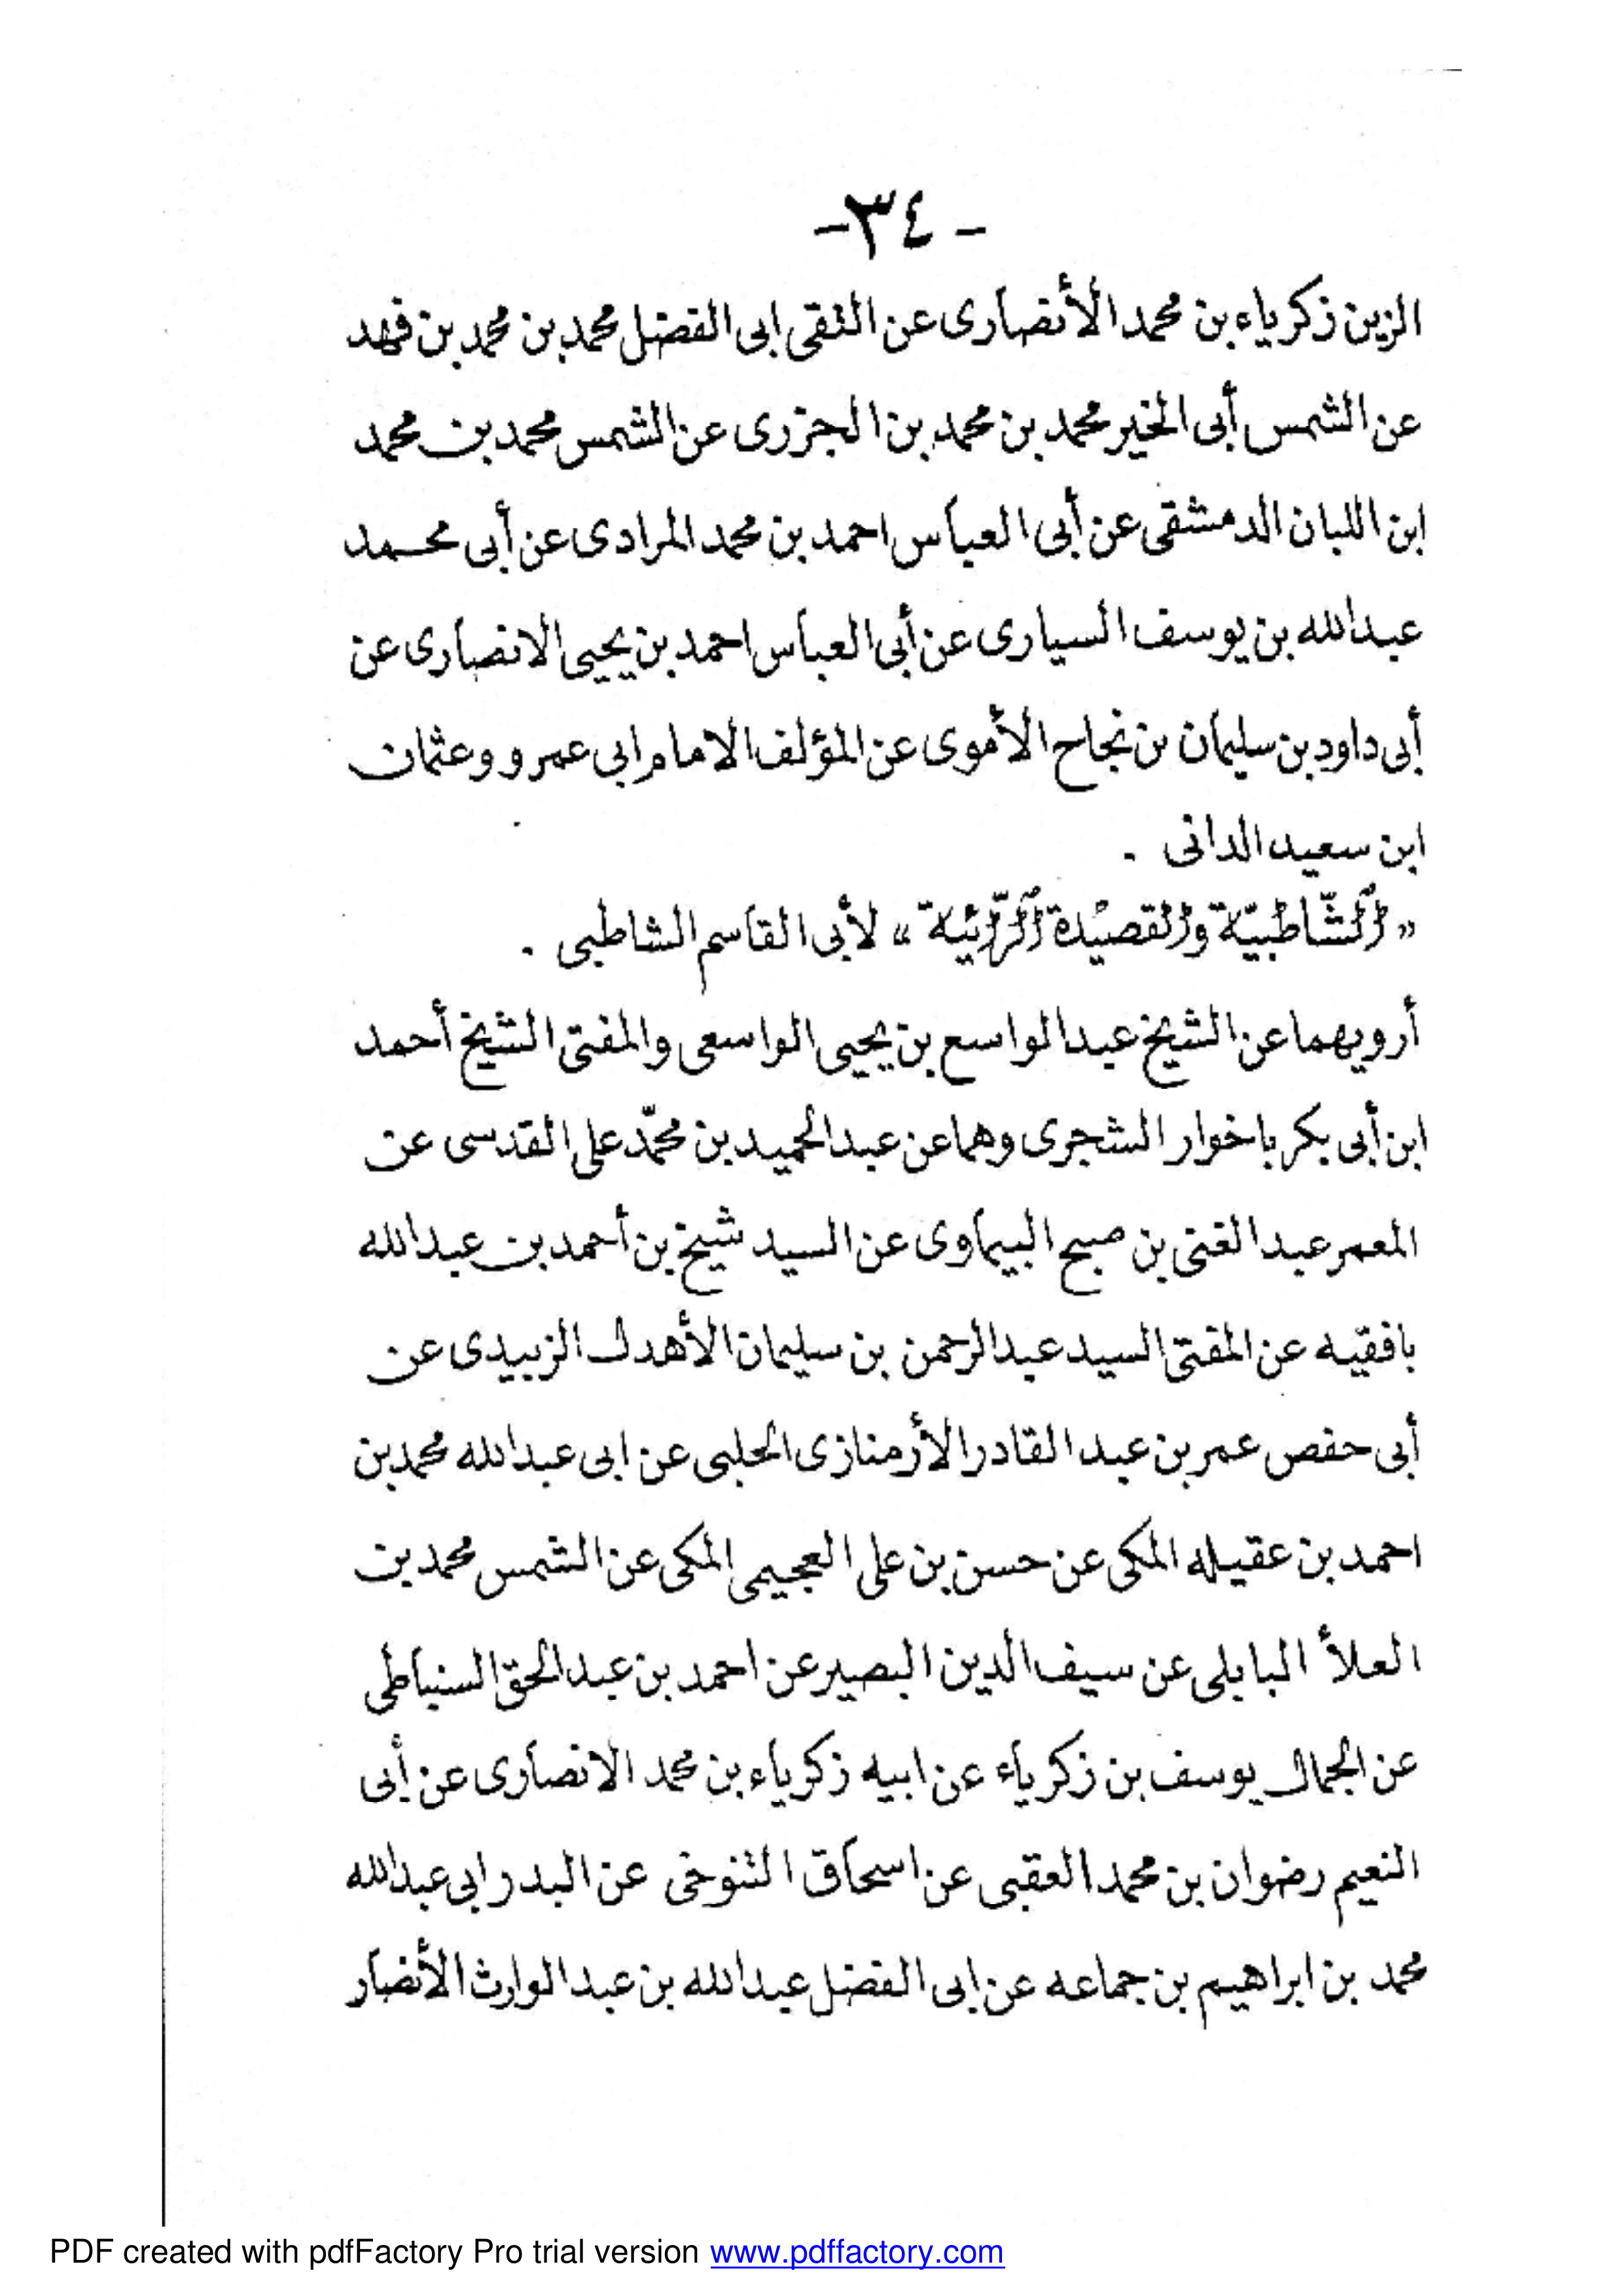 -٣٤ -
الزين زكرياء بن محمد الأنصارى عن التقى ابى الفضل محمد بن محمد بن فهد
عن الشمس أبى الخير محمد بن محمد بن الجزرى عن الشمس محمد بن محمد
ابن اللبان الدمشقى عن أبى العباس احمد بن محمد المرادى عن أبى محمد
عبدالله بن يوسف السيارى عن أبى العباس احمد بن يحيى الانصارى عن
أبى داود بن سليمان بن نجاح الأموى عن المؤلف الامام ابى عمرو وعثمان
ابن سعيد الدانى .
« الشّاطبيّة والقصيدة الرّائية » لأبى القاسم الشاطبى .
أرويهما عن الشيخ عبد الواسع بن يحيى الواسعى والمفتى الشيخ أحمد
ابن أبى بكر باخوار الشجرى وهما عن عبد الحميد بن محمّد على القدسى عن
المعمر عبد الغنى بن صبح البيماوى عن السيد شيخ بن أحمد بن عبدالله
بافقيه عن المفتى السيد عبدالرحمن بن سليمان الأهدل الزبيدى عن
أبى حفص عمر بن عبد القادر الأرمنازى الحلبى عن ابى عبدالله محمد بن
احمد بن عقيله المكى عن حسن بن على العجيمى المكى عن الشمس محمد بن
العلأ البابلى عن سيف الدين البصير عن احمد بن عبد الحق السنباطى
عن الجمال يوسف بن زكرياء عن ابيه زكرياء بن محمد الانصارى عن أبى
النعيم رضوان بن محمد العقبى عن اسحاق التنوخى عن البدر ابى عبدالله
محمد بن ابراهيم بن جماعه عن ابى الفضل عبدالله بن عبد الوارث الأنصار
PDF created with pdfFactory Pro trial version www.pdffactory.com